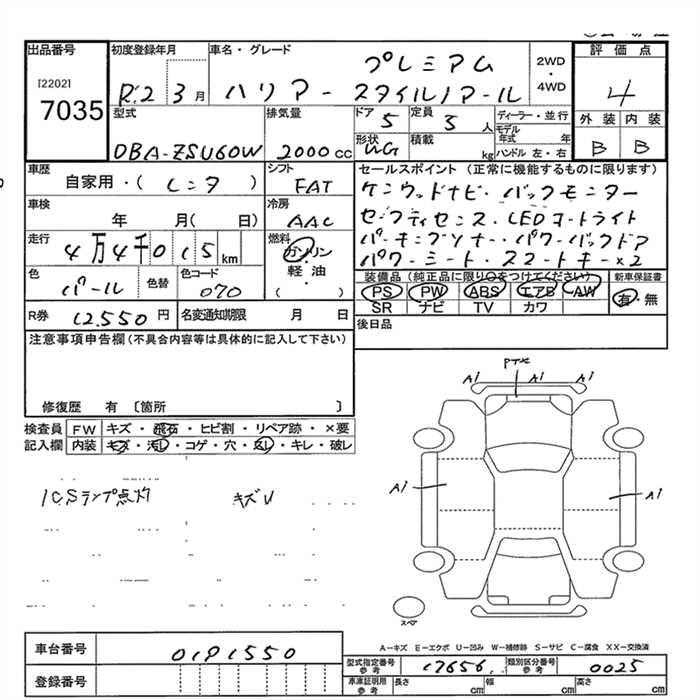 出品番号 初度登録年月 車名・グレード プレミアム 2WD・4WD 評価点
[2202] 7035 R2 3月 ハリアー スタイルノアール 4
型式 排気量 ドア 5 定員 5人 ディーラー・並行 外装 内装
DBA-ZSU60W 2000cc 形状 WG 積載 kg モデル年式 年 ハンドル 左・右 B B
車歴 自家用・(レンタ) シフト FAT セールスポイント (正常に機能するものに限ります)
ケンウッドナビ・バックモニター
車検 年 月(日) 冷房 AAC セーフティセンス・LEDヘッドライト
走行 4万4千015km 燃料 ガソリン・軽油・( ) パーキングソナー・パワーバックドア
パワーシート・スマートキー×2
色 パール 色替 色コード 070 装備品(純正品に限り○をつけてください) 新車保証書
PS PW ABS エアB AW 有・無
R券 12.550円 名変通知期限 月 日 SR ナビ TV カワ
注意事項申告欄(不具合内容等は具体的に記入して下さい) 後日品
修復歴 有 〔箇所 〕
検査員 FW キズ・飛石・ヒビ割・リペア跡・×要
記入欄 内装 キズ・汚レ・コゲ・穴・スレ・キレ・破レ
ICSランプ点灯 キズU
A1 A1 A1
A1 A1
スペア
A-キズ E-エクボ U-凹み W-補修跡 S-サビ C-腐食 XX-交換済
車台番号 0191550
型式指定番号 参考 17656 類別区分番号 参考 0025
登録番号 車庫証明用 参考 長さ cm 幅 cm 高さ cm